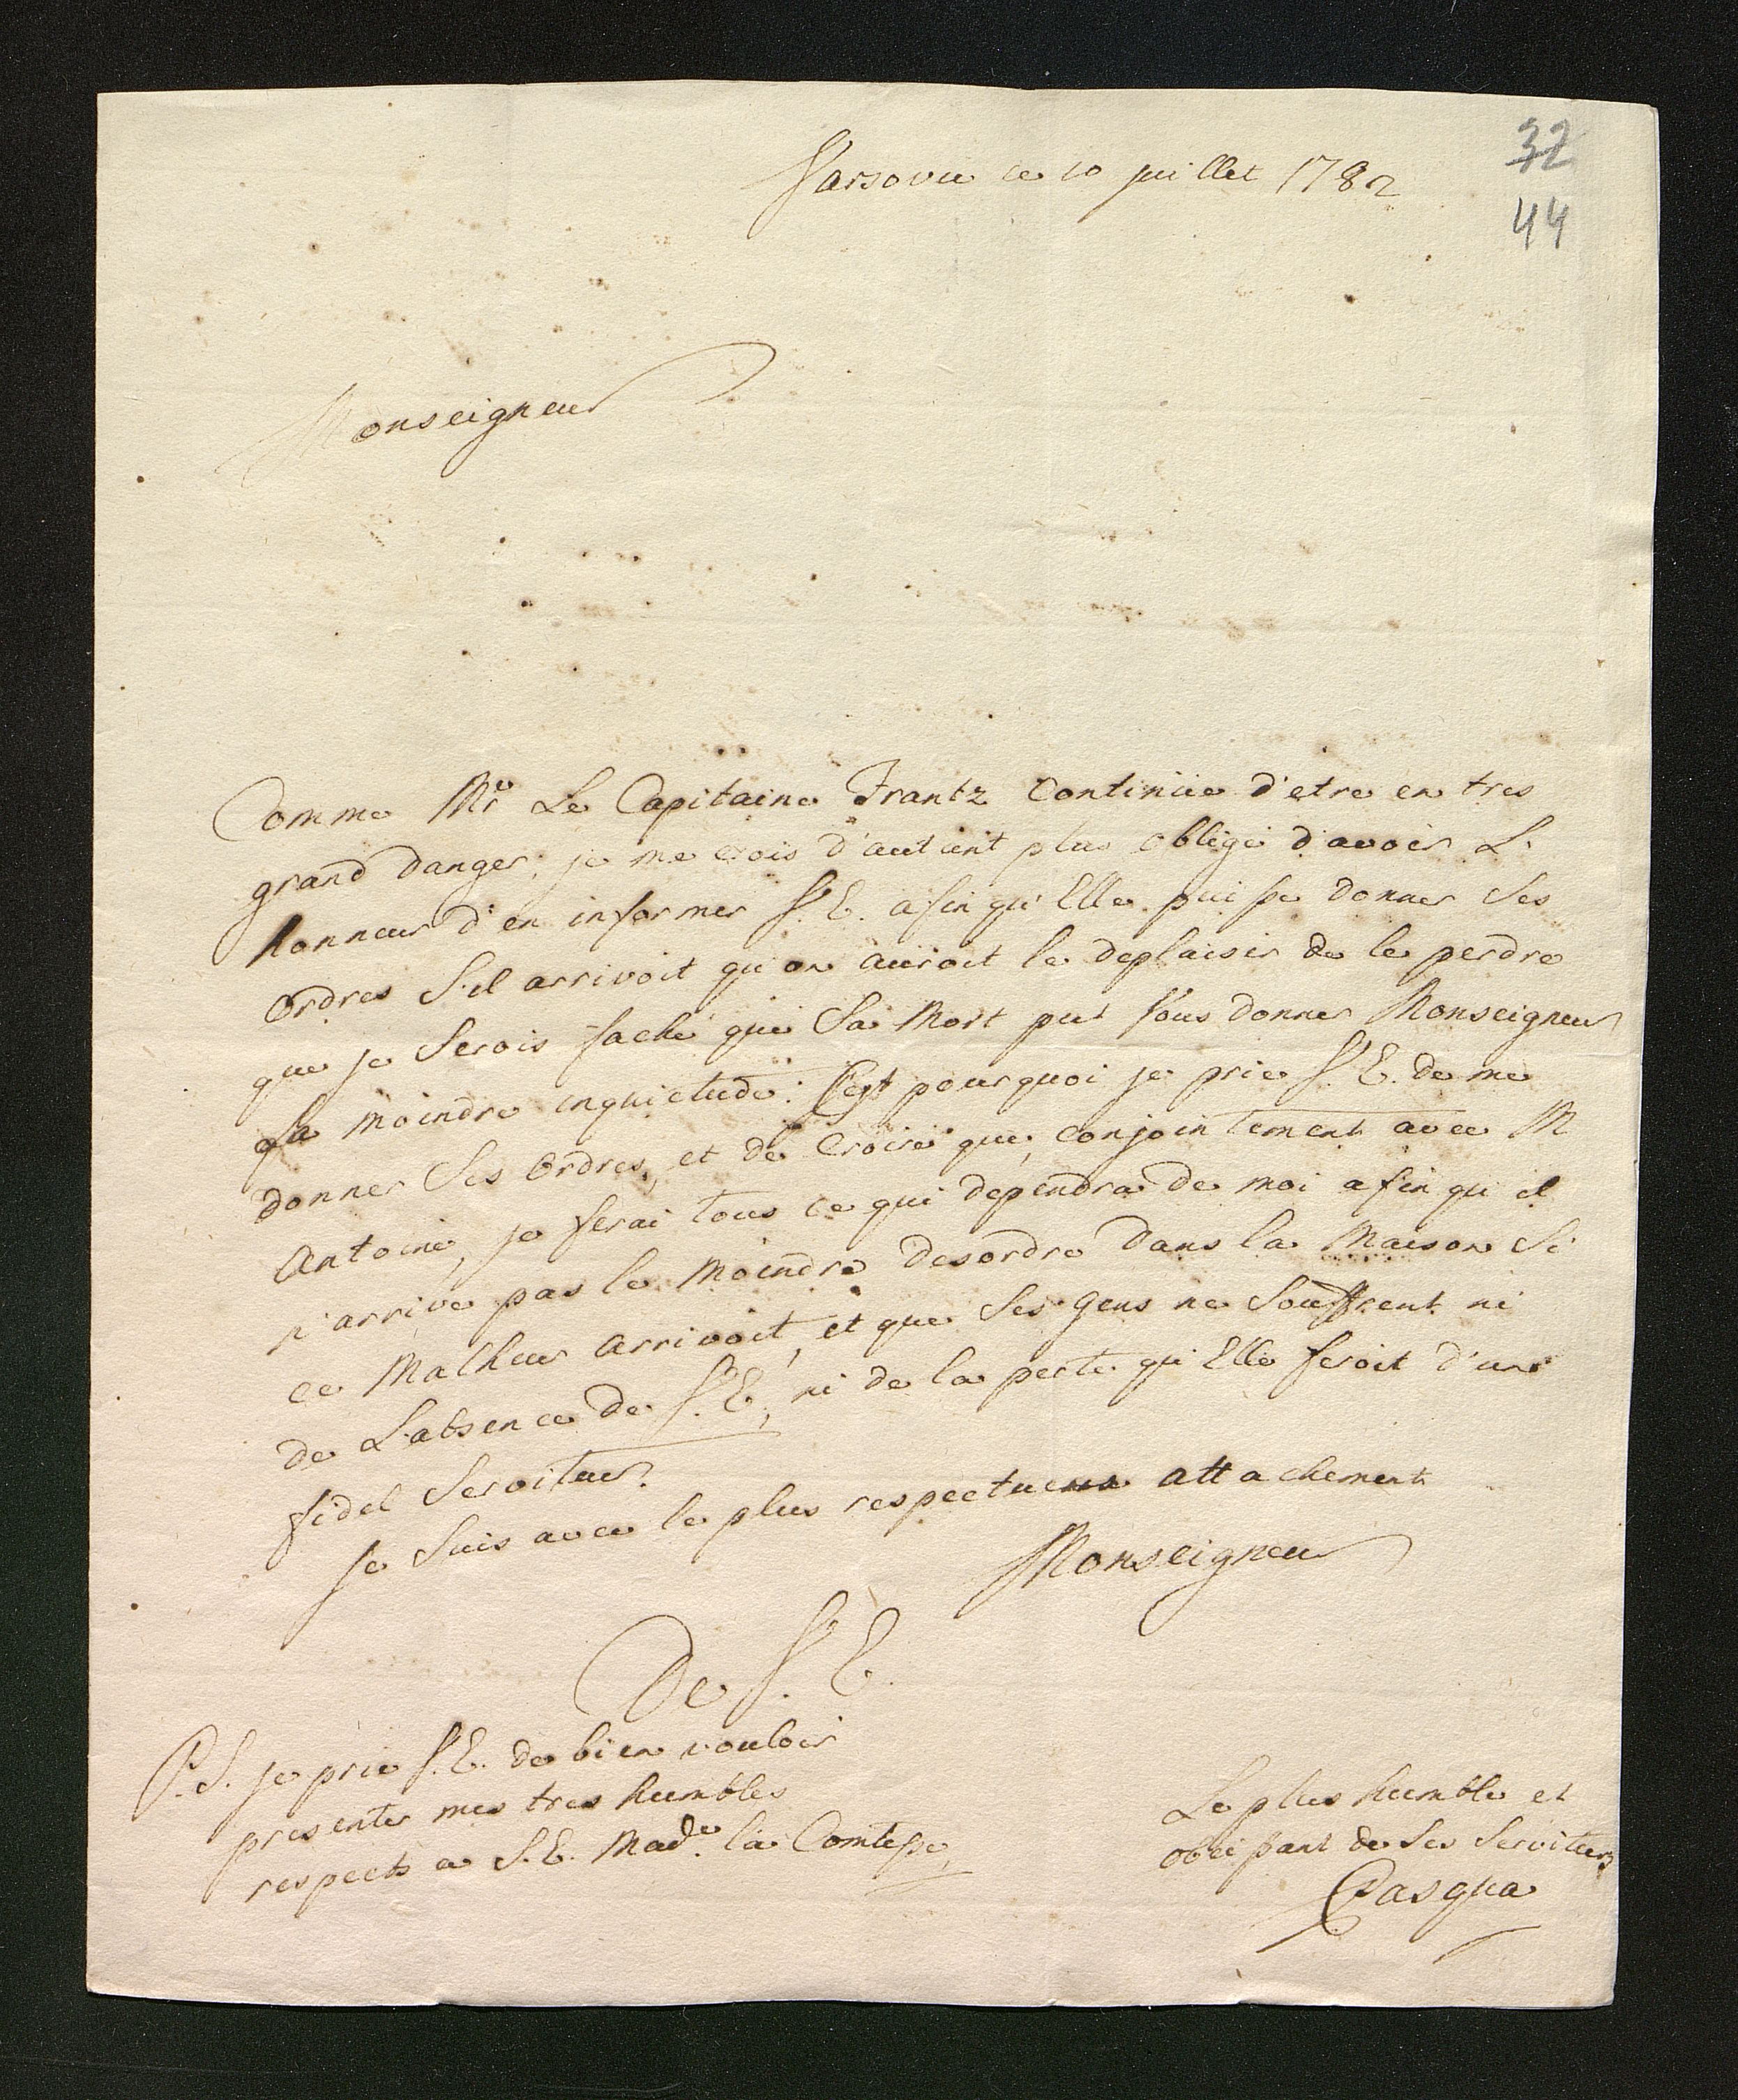 Varsovie ce 10 juillet 1782
32
44
Monseigneur
Comme Mr Le Capitaine Frantz Continüe d'etre en tres
grand danger, je me crois d'autant plus obligé d'avoir L'
honneur d'en informer V.E. afin qu'Elle puisse donner Ses
Ordres S'il arrivoit qu'on auroit le deplaisir de le perdre
que je Serois faché que Sa Mort put Vous donner Monseigneur
La moindre inquietude. C'est pourquoi je prie V.E. de me
donner Ses Ordres, et de Croire que, conjointement avec M
Antoine, je ferai tous ce qui dependra de moi afin qu'il
n'arrive pas le Moindre desordre dans la Maison Si
ce Malheur arrivoit, et que Ses Gens ne Souffrent ni
de L'absence de V.E, ni de la perte qu'Elle feroit d'un
fidel Serviteur.
Je Suis avec le plus respectueux attachement
Monseigneur
De V. E.
P.S. je prie V.E. de bien vouloir
presenter mes tres humbles
respects a S.E. Made. la Comtesse,
Le plus humble et
obeissant de Ses Serviteurs
Pasqua